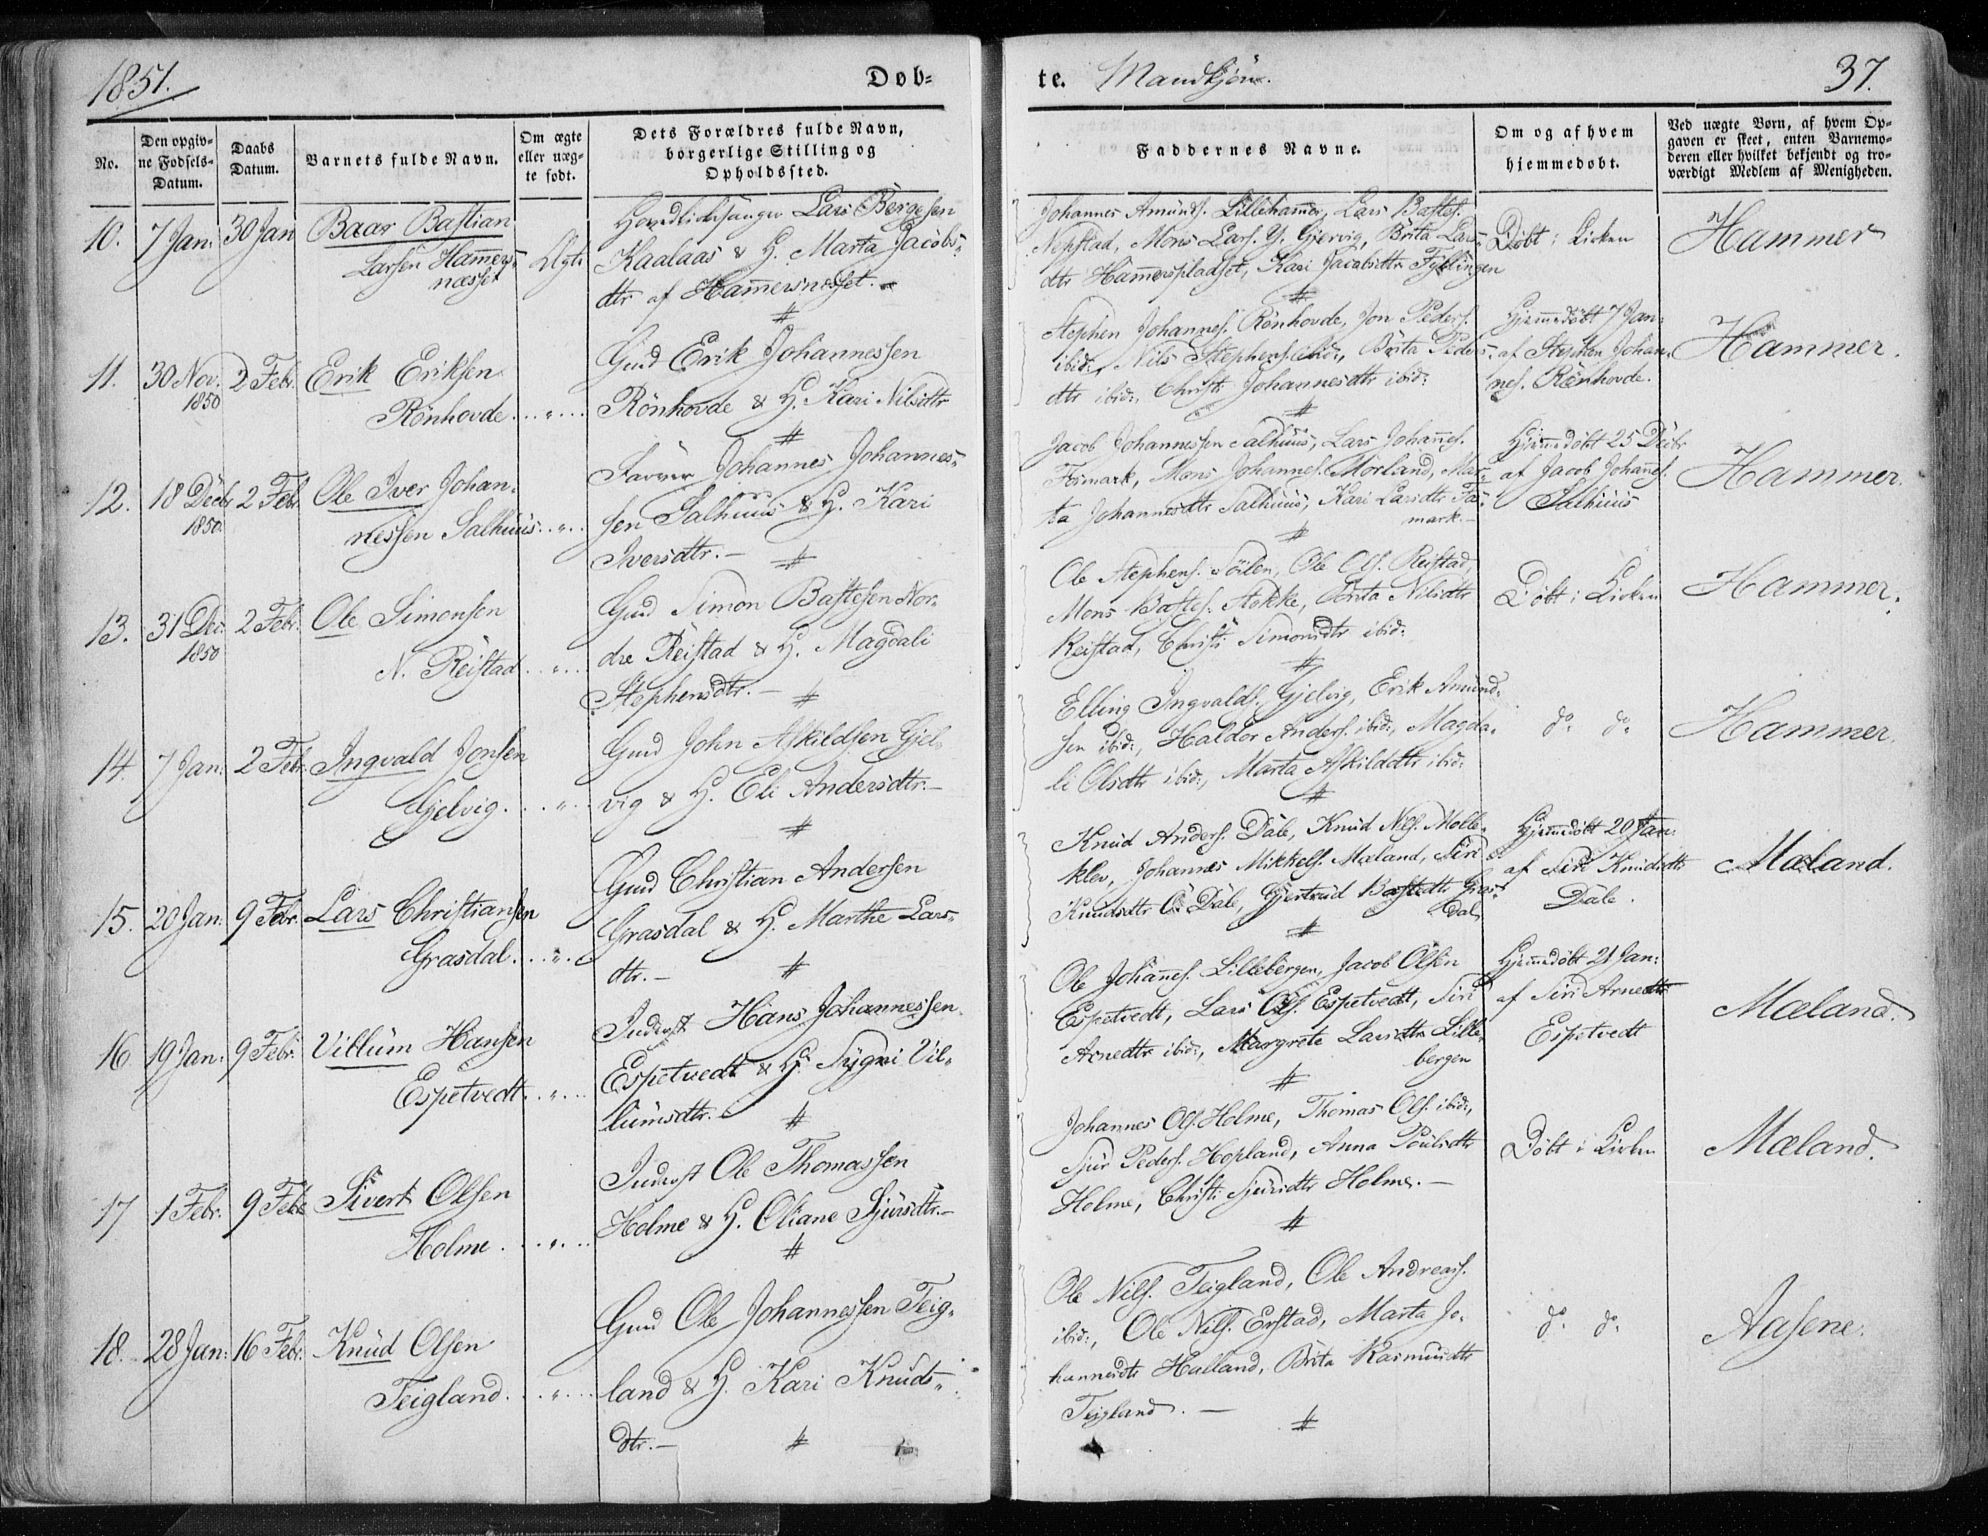 1851.
Døb-
te. Mandkjön.
37.
No.
Den opgiv-
ne Fødsels-
Datum.
Daabs
Datum.
Barnets fulde Navn.
Om ægte
eller uæg-
te født.
Dets Forældres fulde Navn,
borgerlige Stilling og
Opholdssted.
Faddernes Navne.
Om og af hvem
hjemmedøbt.
Ved uægte Børn, af hvem Op-
gaven er skeet, enten Barnemo-
deren eller hvilket bekjendt og tro-
værdigt Medlem af Menigheden.
10. 7 Jan: 30 Jan Baar Bastian
Larsen Hamers-
næsset
Ægte
Lars Børgesen
Kaalaas & H. Marta Jacobs-
dtr af Hamersnæsset.
Johannes Amunds. Lillehamer, Lars Bastes.
Nepstad, Mons Lars. Y. Gjervig, Brita Lars-
dtr Hamerspladset, Kari Jacobsdtr Fyllingen
Döbt i Kirken
Hammer
11. 30 Nov. 1850 2 Febr. Erik Eriksen
Rönhovde
Gmd Erik Johannessen
Rönhovde & H. Kari Nilsdtr
Stephen Johannes. Rönhovde, Jon Peders.
ibid:, Nils Stephens. ibid:, Brita Peders-
dtr ibid:, Christi Johannesdtr ibid:
Hjemedöbt 7 Jan:
af Stephen Johan-
nes. Rönhovde.
Hammer.
12. 18 Decbr 1850. 2 Febr. Ole Iver Johan-
nessen Salhuus
Johannes Johannes-
sen Salhuus & H. Kari
Iversdtr.
Jacob Johannessen Salhuus, Lars Johannes.
Fosmark, Mons Johannes. Morland, Mar-
ta Johannesdtr Salhuus, Kari Larsdtr Fos-
mark.
Hjemedöbt 25 Decbr
af Jacob Johanes.
Salhuus
Hammer.
13. 31 Dec. 1850 2 Febr. Ole Simonsen
N. Reistad
Gmd Simon Bastesen Nor-
dre Reistad & H. Magdali
Stephensdtr.
Ole Stephens. Söilen, Ole Ols. Reistad,
Mons Bastes. Stokke, Brita Nilsdtr
Reistad, Christi Simonsdtr ibid:
Döbt i Kirken
Hammer.
14. 7 Jan: 2 Febr. Ingvald Jonsen
Gjelvig.
Gmd John Askildsen Gjel-
vig & H. Eli Andersdtr.
Elling Ingvalds. Gjelvig, Erik Amund-
sen ibid:, Haldor Anders. ibid:, Magda-
li Olsdtr ibid:, Marta Askilddtr ibid:
do. do.
Hammer
15. 20 Jan: 9 Febr. Lars Christiansen
Grasdal.
Gmd Christian Andersen
Grasdal & H. Marthe Lars-
dtr.
Knud Anders. Dale, Knud Nils. Molle-
klev, Johannes Mikkels. Mæland, Siri
Knudsdtr Dale, Gjertrud Bastedtr Gras-
dal
Hjemedöbt 20 Jan:
af Siri Knudsdtr
Dale.
Mæland.
16 19 Jan: 9 Febr. Villum Hansen
Espetvedt.
Inderst Hans Johannessen
Espetvedt & H. Sygni Vil-
lumsdtr.
Ole Johannes. Lillebergen, Jacob Olsen
Espetvedt, Lars Ols. Espetvedt, Siri
Arnedtr ibid:, Margrete Larsdtr Lille-
bergen
Hjemedöbt 21 Jan:
af Siri Arnedtr
Espetvedt
Mæland.
17 1 Febr. 9 Febr Sivert Olsen
Holme.
Inderst Ole Thomassen
Holme & H. Oliane Sjursdtr.
Johannes Ols. Holme, Thomas Ols. ibid:,
Sjur Peders. Hopland, Anna Poulsdtr
Holme, Christi Sjursdtr Holme.
Döbt i Kirken
Mæland.
18. 28 Jan: 16 Febr. Knud Olsen
Teigland.
Gmd Ole Johannessen Teig-
land & H. Kari Knuds-
dtr.
Ole Nils. Teigland, Ole Andreas.
ibid:, Ole Nils. Erstad, Marta Jo-
hannesdtr Halland, Brita Rasmusdtr
Teigland.
do. do.
Aasene.